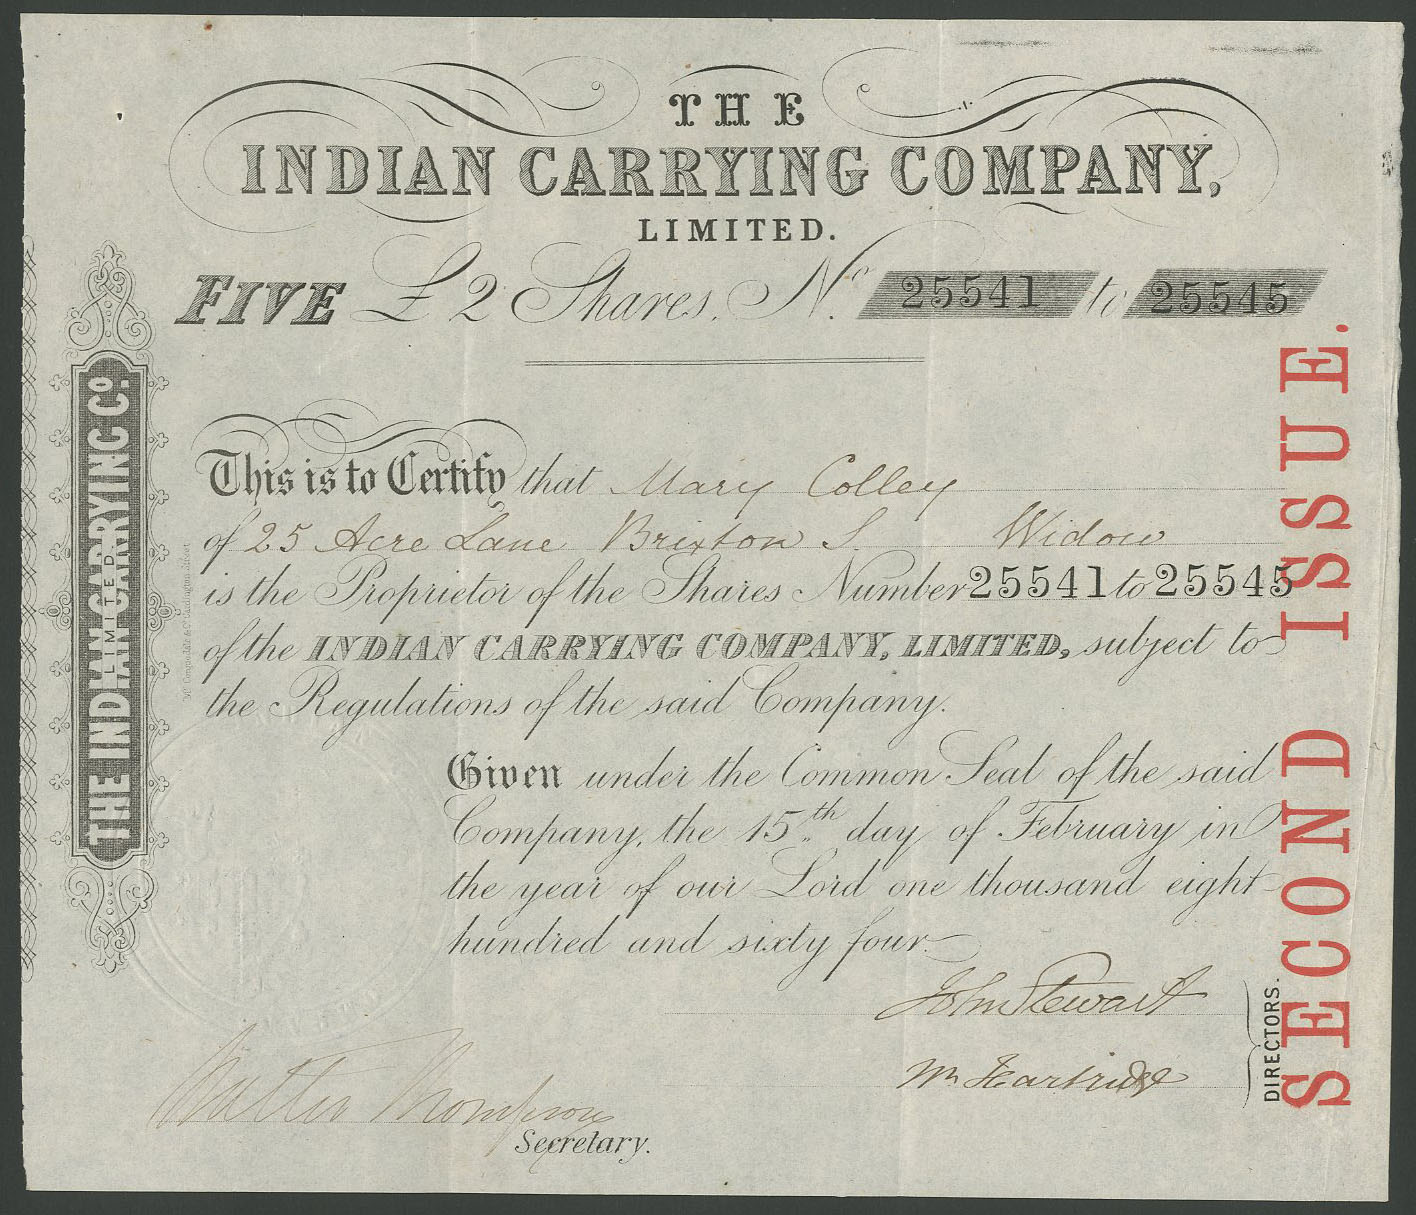 THE
INDIAN CARRYING COMPANY,
LIMITED.
FIVE £2 Shares, No. 25541 to 25545
This is to Certify that Mary Colley
of 25 Acre Lane Brixton S. Widow
is the Proprietor of the Shares Number 25541 to 25545
of the INDIAN CARRYING COMPANY, LIMITED, subject to
the Regulations of the said Company.
Given under the Common Seal of the said
Company, the 15th day of February in
the year of our Lord one thousand eight
hundred and sixty four.
John Stewart
Wm Hartridge
DIRECTORS.
Walter Thompson
Secretary.
THE INDIAN CARRYING Co.
LIMITED.
SECOND ISSUE.